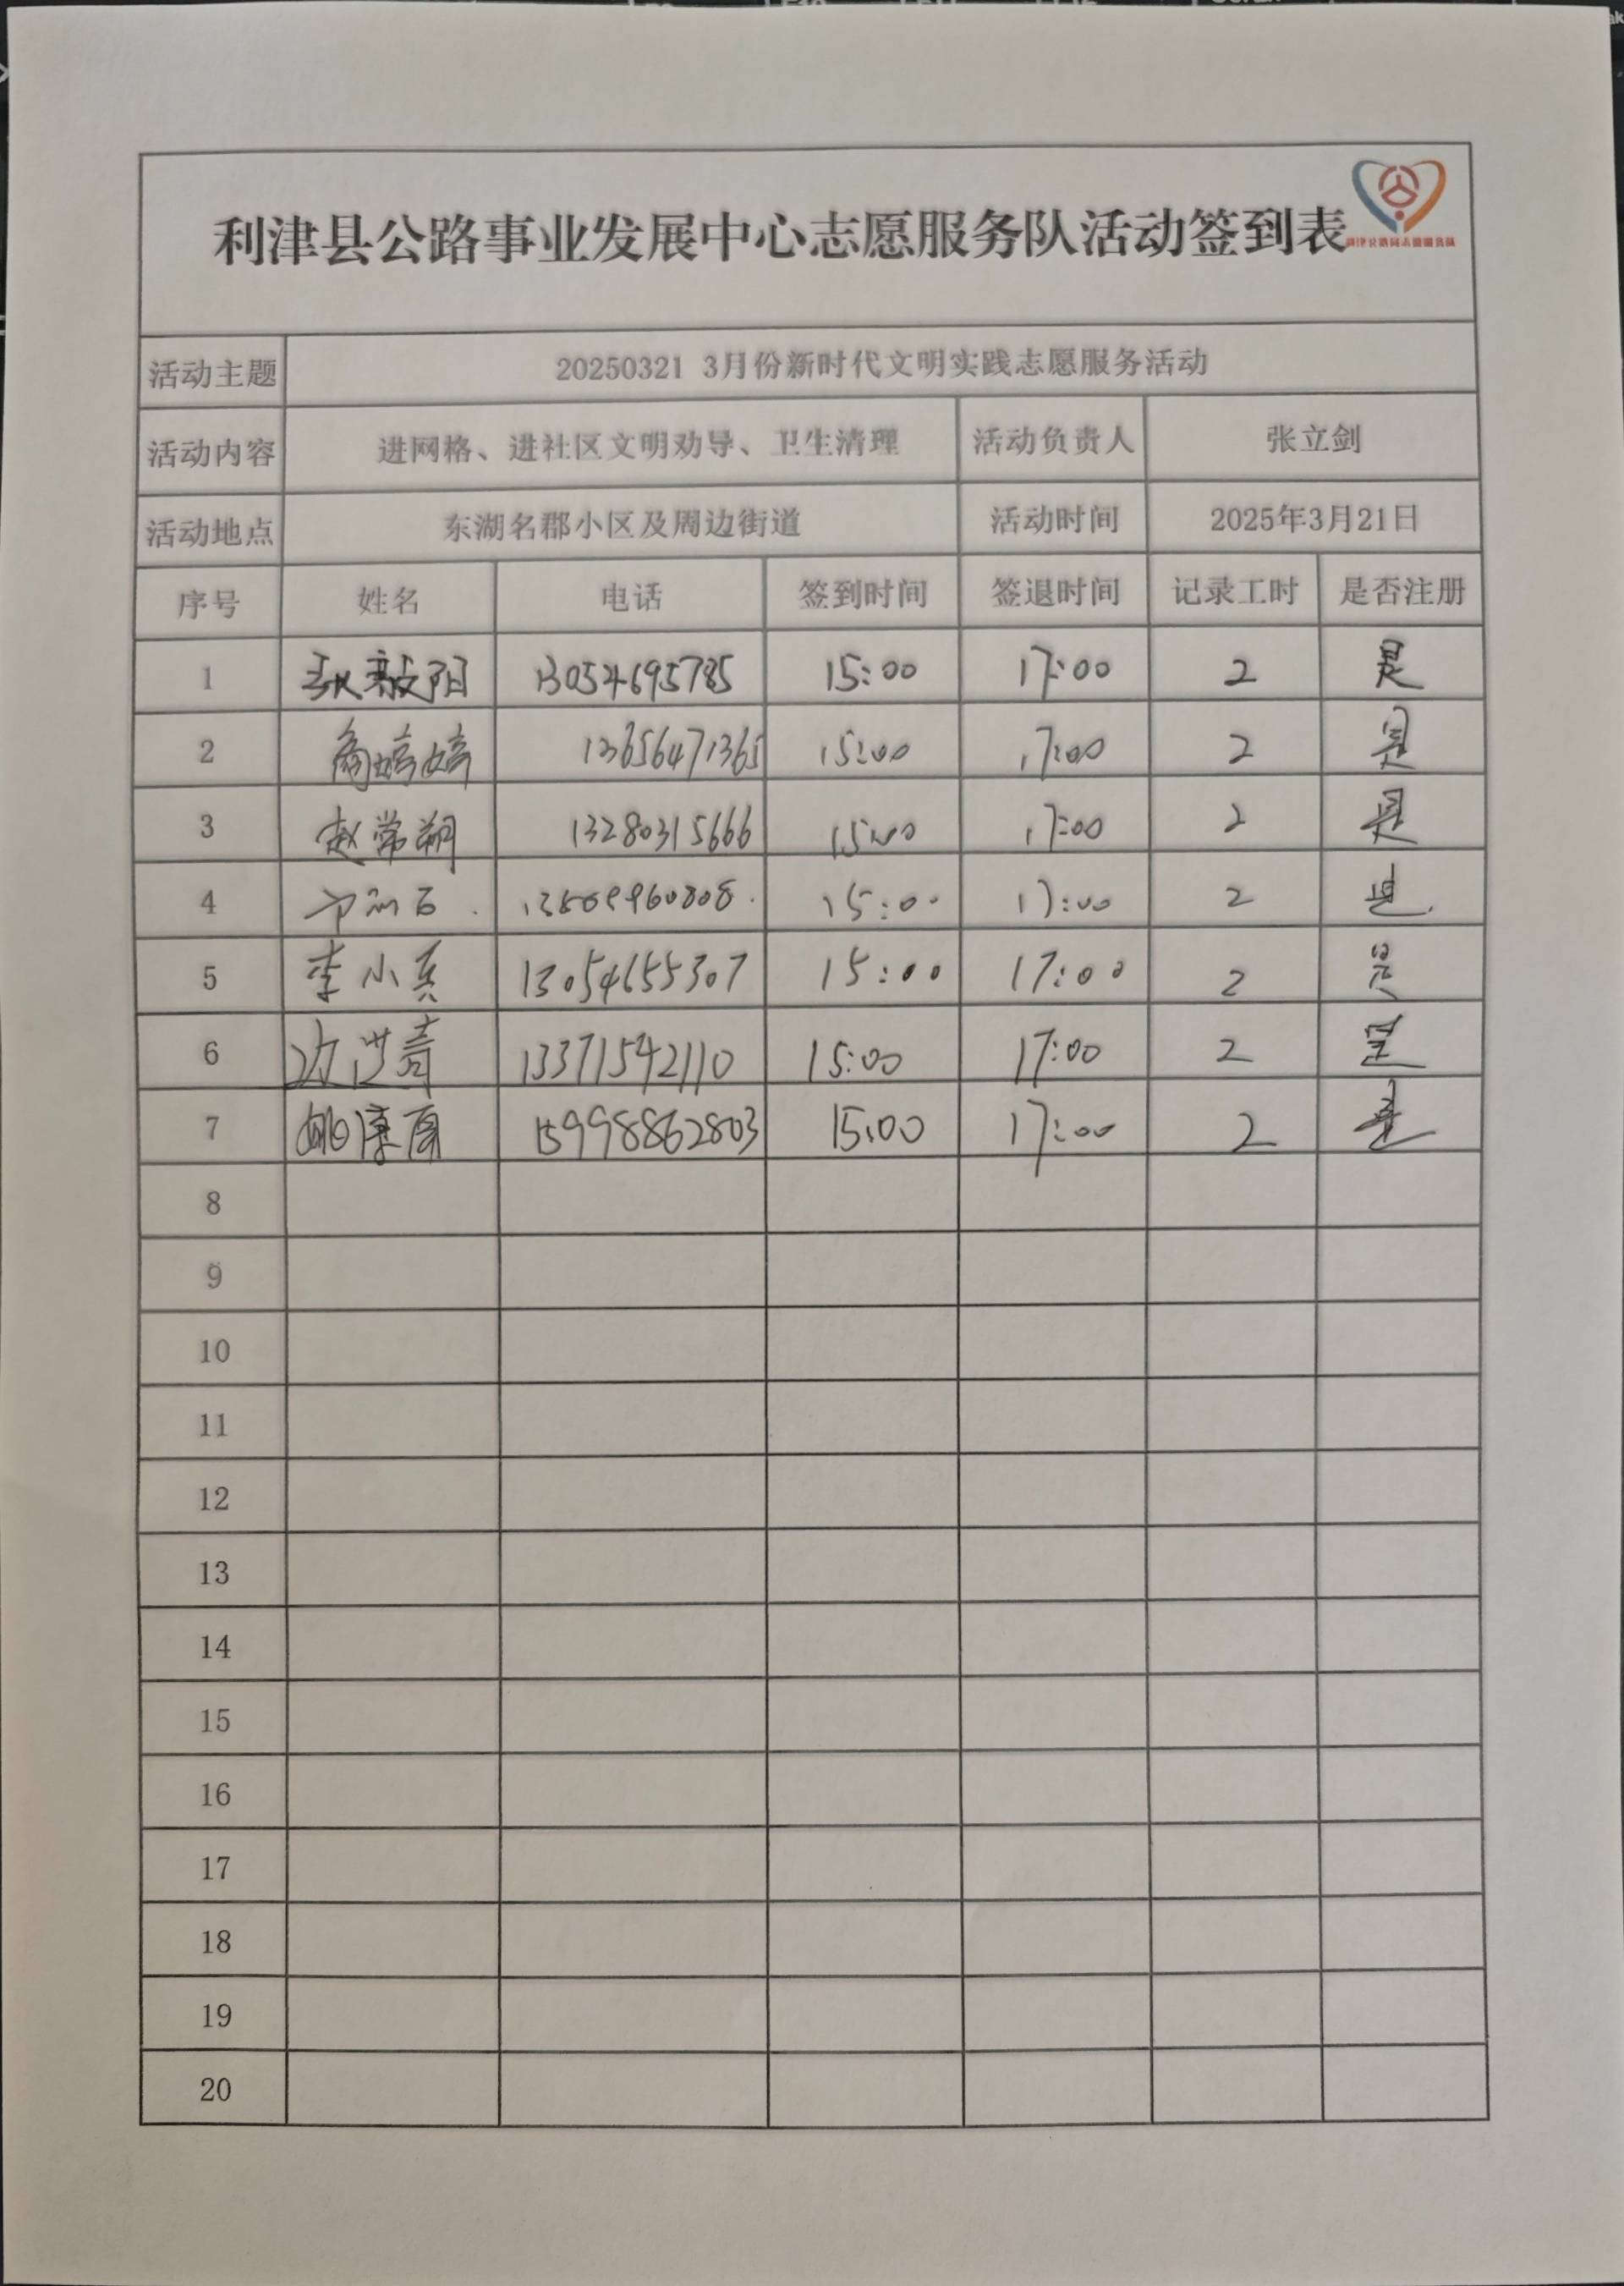 利津县公路事业发展中心志愿服务队活动签到表
活动主题 20250321 3月份新时代文明实践志愿服务活动
活动内容 进网格、进社区文明劝导、卫生清理 活动负责人 张立剑
活动地点 东湖名郡小区及周边街道 活动时间 2025年3月21日
序号 姓名 电话 签到时间 签退时间 记录工时 是否注册
1 13054695785 15:00 17:00 2 是
2 商婷婷 13656471365 15:00 17:00 2 是
3 赵常朔 13280315666 15:00 17:00 2 是
4 15:00 17:00 2 是
5 李小真 13054655307 15:00 17:00 2 是
6 13371542110 15:00 17:00 2 是
7 姚康寅 15998862803 15:00 17:00 2 是
8
9
10
11
12
13
14
15
16
17
18
19
20